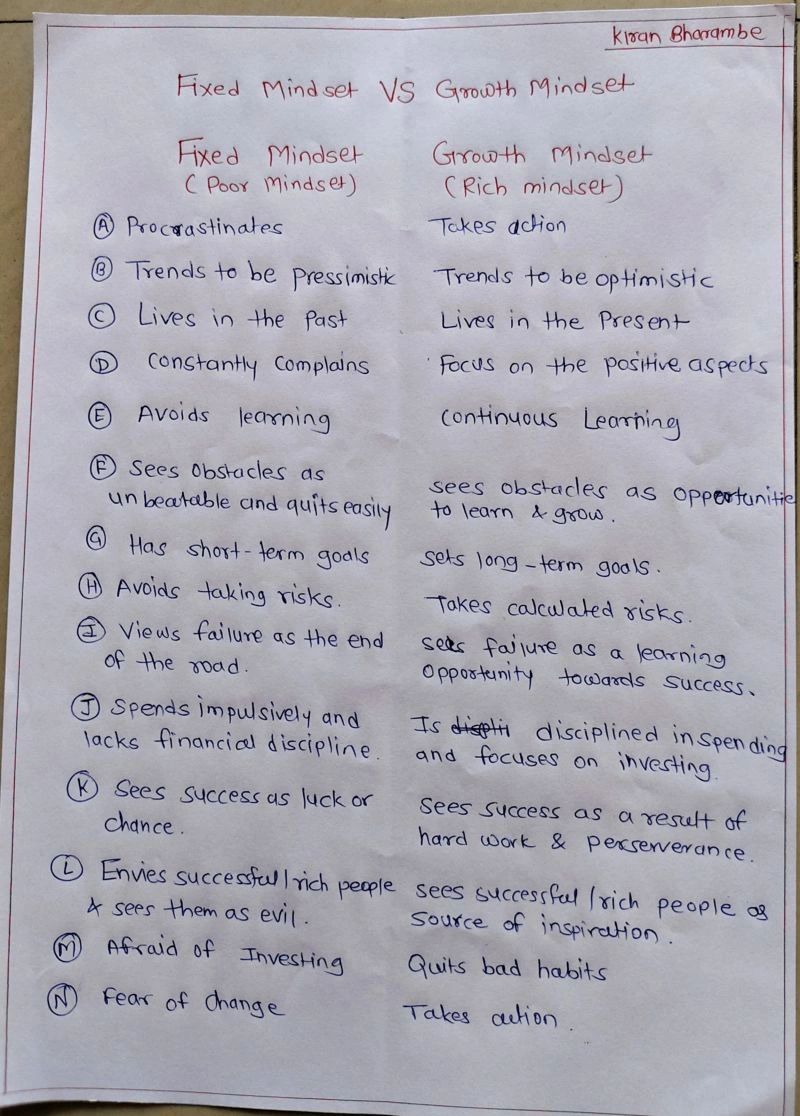 Kiran Bharambe
Fixed Mindset VS Growth Mindset
Fixed Mindset Growth Mindset
(Poor Mindset) (Rich mindset)
A Procrastinates Takes action
B Trends to be pressimistic Trends to be optimistic
C Lives in the Past Lives in the Present
D Constantly Complains Focus on the positive aspects
E Avoids learning Continuous Learning
F Sees Obstacles as
unbeatable and quits easily
sees obstacles as opportunitie
to learn & grow.
G Has short-term goals sets long-term goals.
H Avoids taking risks. Takes calculated risks.
I Views failure as the end
of the road.
sees failure as a learning
Opportunity towards success.
J Spends impulsively and
lacks financial discipline.
Is displi disciplined in spending
and focuses on investing.
K Sees success as luck or
chance.
Sees success as a result of
hard work & perserverance.
L Envies successful/rich people
& sees them as evil.
sees successful/rich people as
source of inspiration.
M Afraid of Investing Quits bad habits
N Fear of change Takes action.